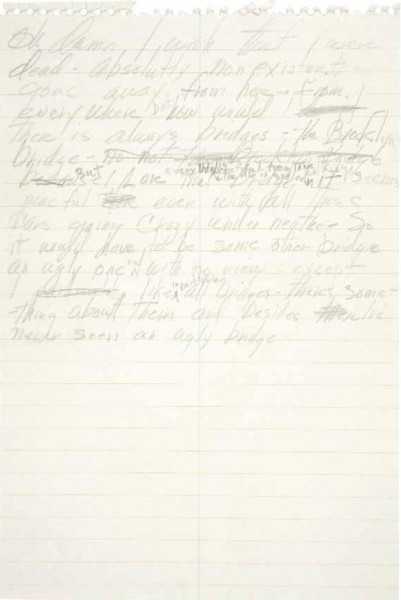 Oh damn I wish that I were
dead - absolutly nonexistent
gone away from here - from
everywhere but how would I
There is always bridges - the Brooklyn
bridge
But I love that bridge
peaceful even with all those
cars going crazy under neathe. So
it would have to be some other bridge
an ugly one with no view - except
I like all bridges - there's some-
thing about them and besides I've
never seen an ugly bridge